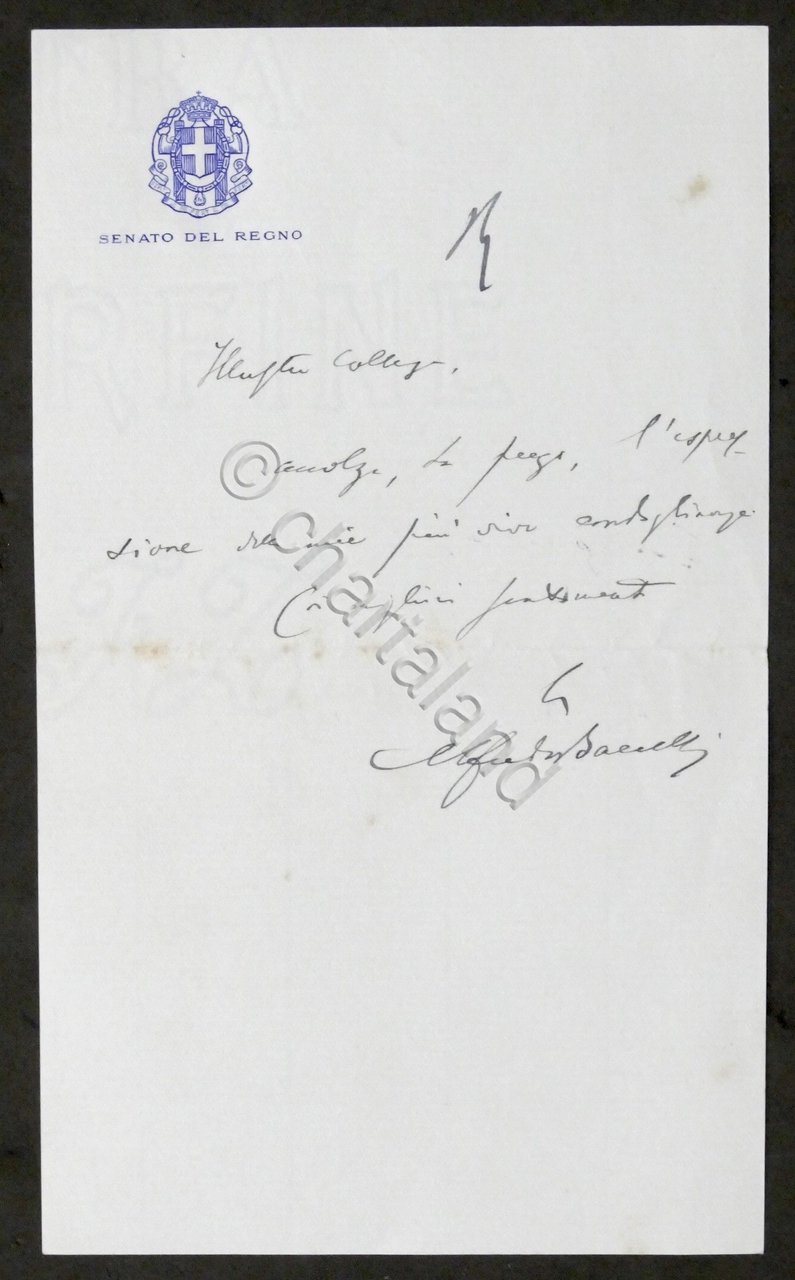 SENATO DEL REGNO
R
Illustre Collega,
accolga, La prego, l'espres-
sione delle mie più vive condoglianze.
Coi migliori sentimenti
Alfredo Baccelli
© Chartaland